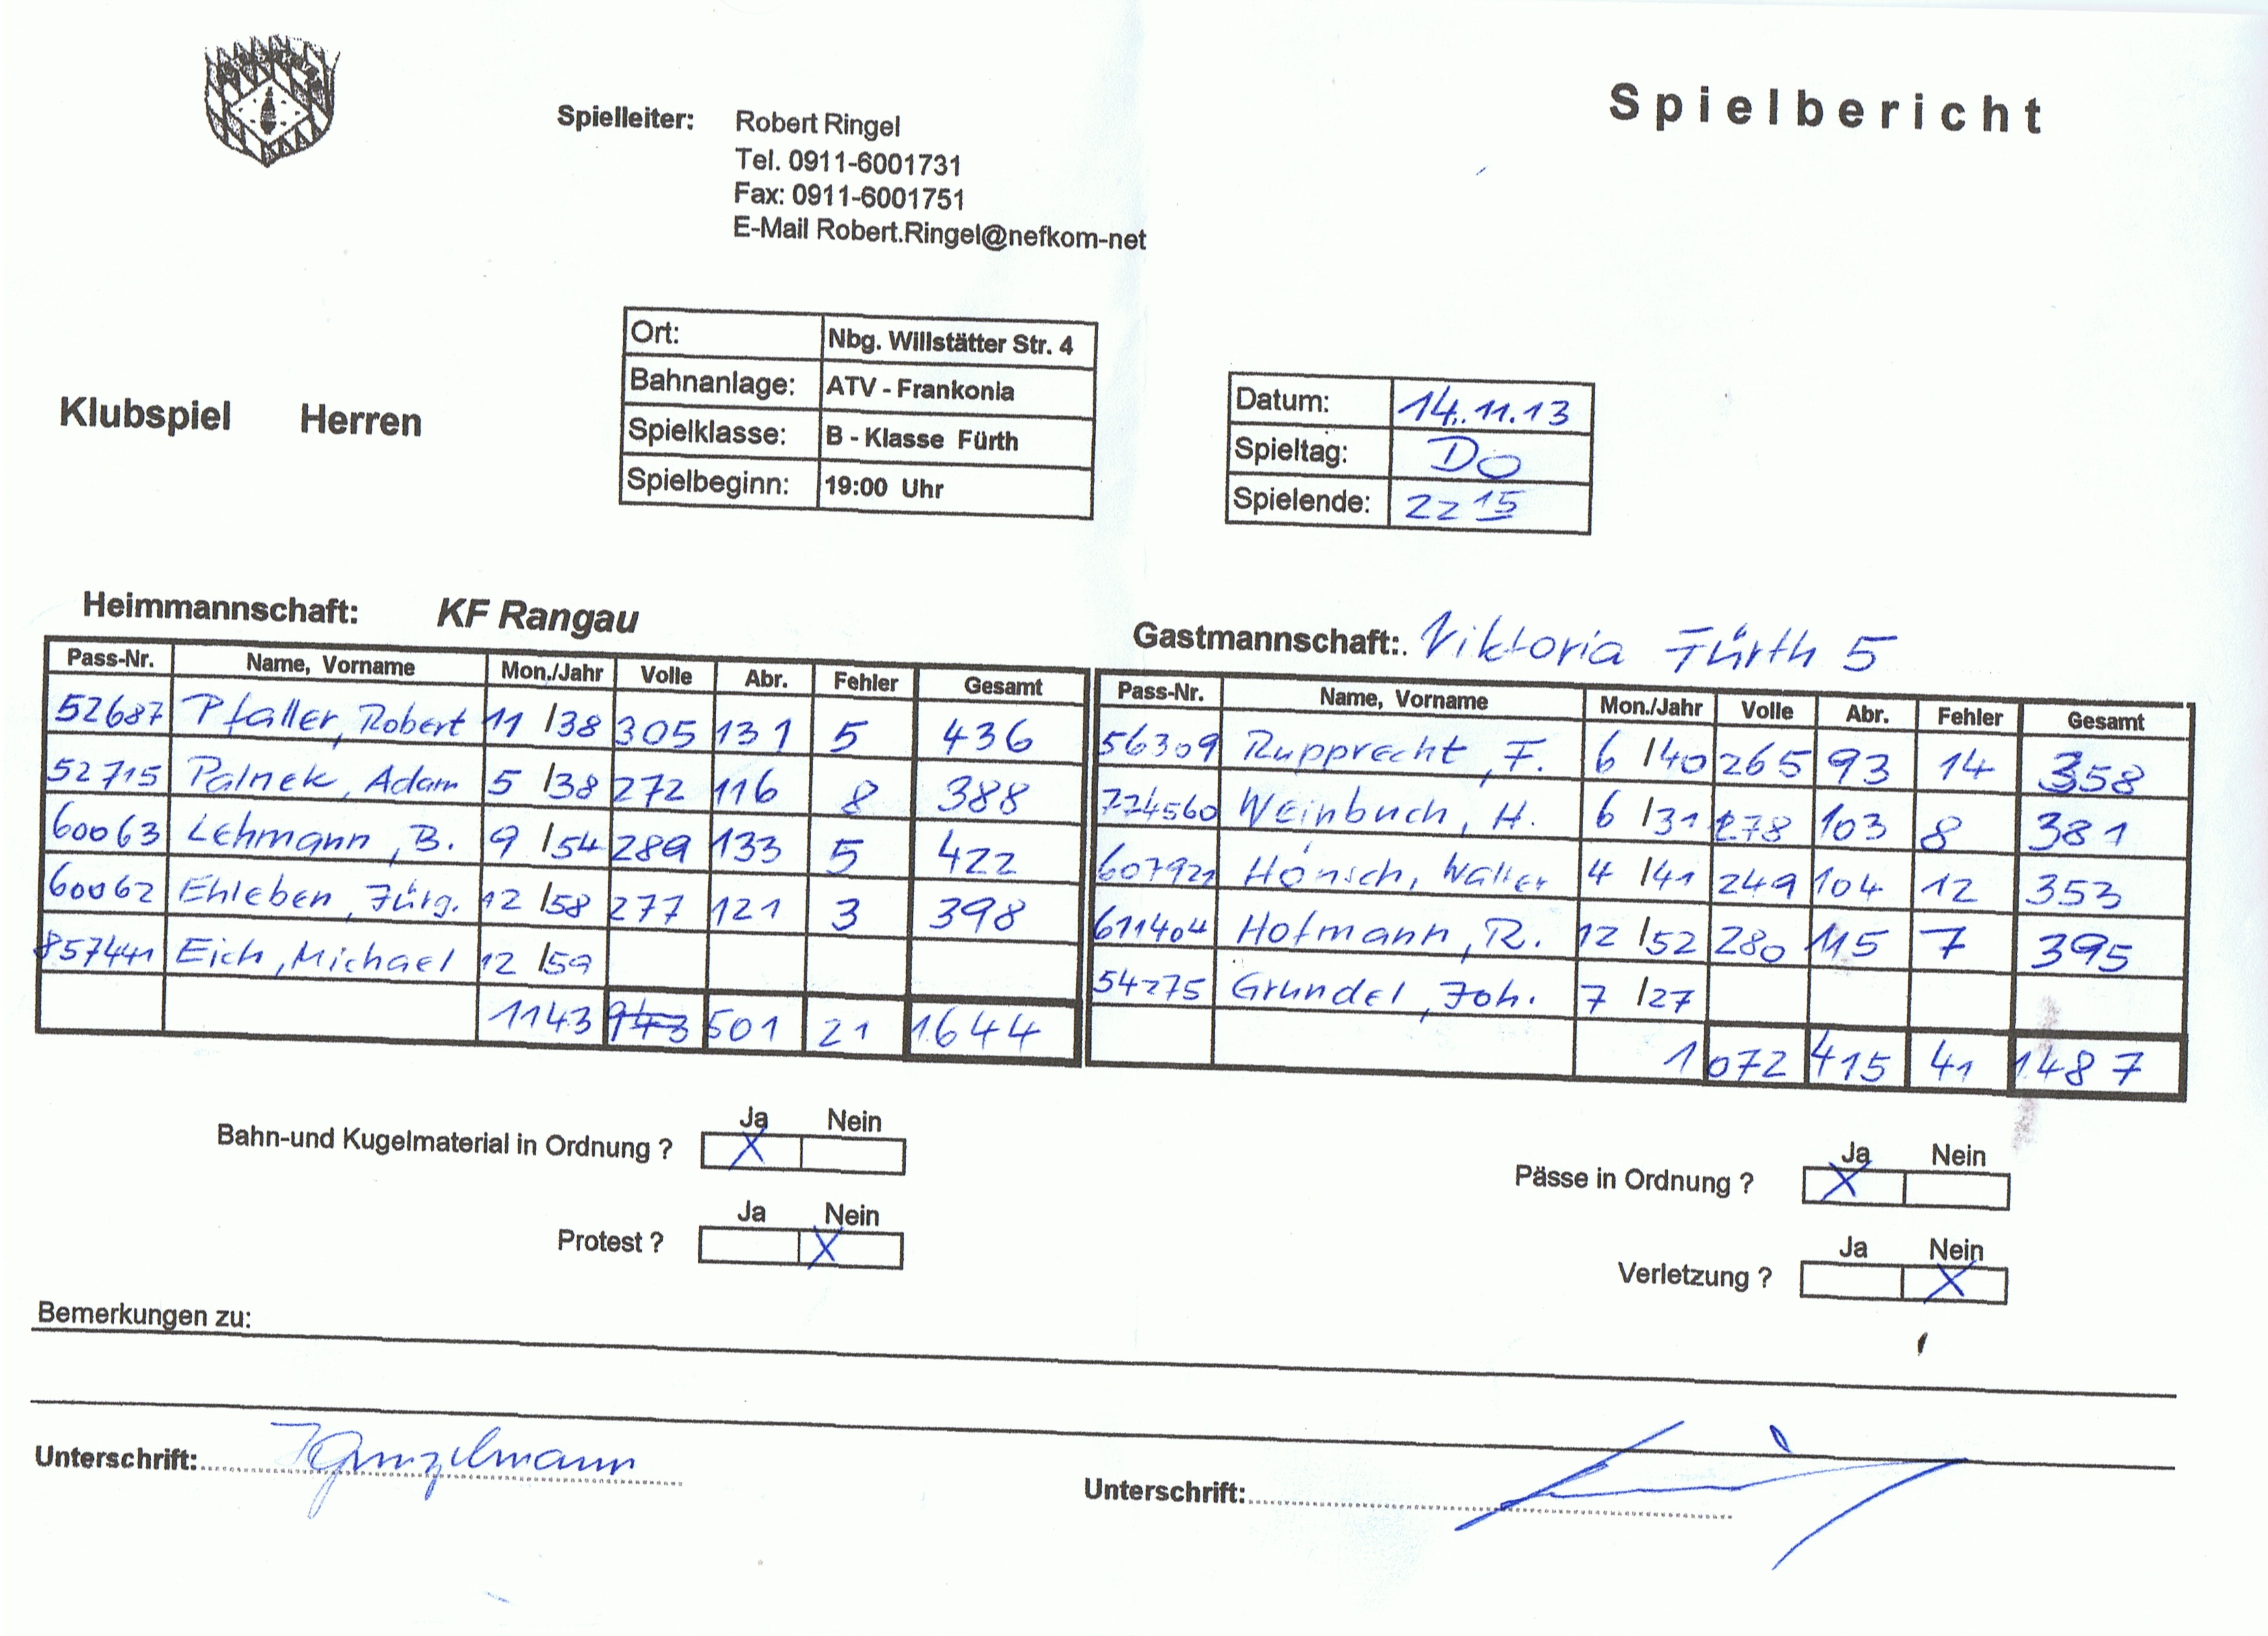 Spielbericht
Spielleiter: Robert Ringel
Tel. 0911-6001731
Fax: 0911-6001751
E-Mail Robert.Ringel@nefkom-net
Klubspiel Herren
Ort: Nbg. Willstätter Str. 4
Bahnanlage: ATV - Frankonia
Spielklasse: B - Klasse Fürth
Spielbeginn: 19:00 Uhr
Datum: 14.11.13
Spieltag: DO
Spielende: 22 15
Heimmannschaft: KF Rangau
Pass-Nr. Name, Vorname Mon./Jahr Volle Abr. Fehler Gesamt
52687 Pfaller, Robert 11 /38 305 131 5 436
52715 Palnek, Adam 5 /38 272 116 8 388
60063 Lehmann, B. 9 /54 289 133 5 422
60062 Ehleben, Jürg. 12 /58 277 121 3 398
857441 Eich, Michael 12 /59
1143 943 501 21 1644
Gastmannschaft:. Viktoria Fürth 5
Pass-Nr. Name, Vorname Mon./Jahr Volle Abr. Fehler Gesamt
56309 Rupprecht, F. 6 /40 265 93 14 358
774560 Weinbuch, H. 6 /31 278 103 8 381
607921 Hönsch, Walter 4 /41 249 104 12 353
611404 Hofmann, R. 12 /52 280 115 7 395
54275 Grundel, Joh. 7 /27
1072 415 41 1487
Bahn-und Kugelmaterial in Ordnung ? Ja X Nein
Pässe in Ordnung ? Ja X Nein
Protest ? Ja Nein X
Verletzung ? Ja Nein X
Bemerkungen zu:
Unterschrift:
Unterschrift: